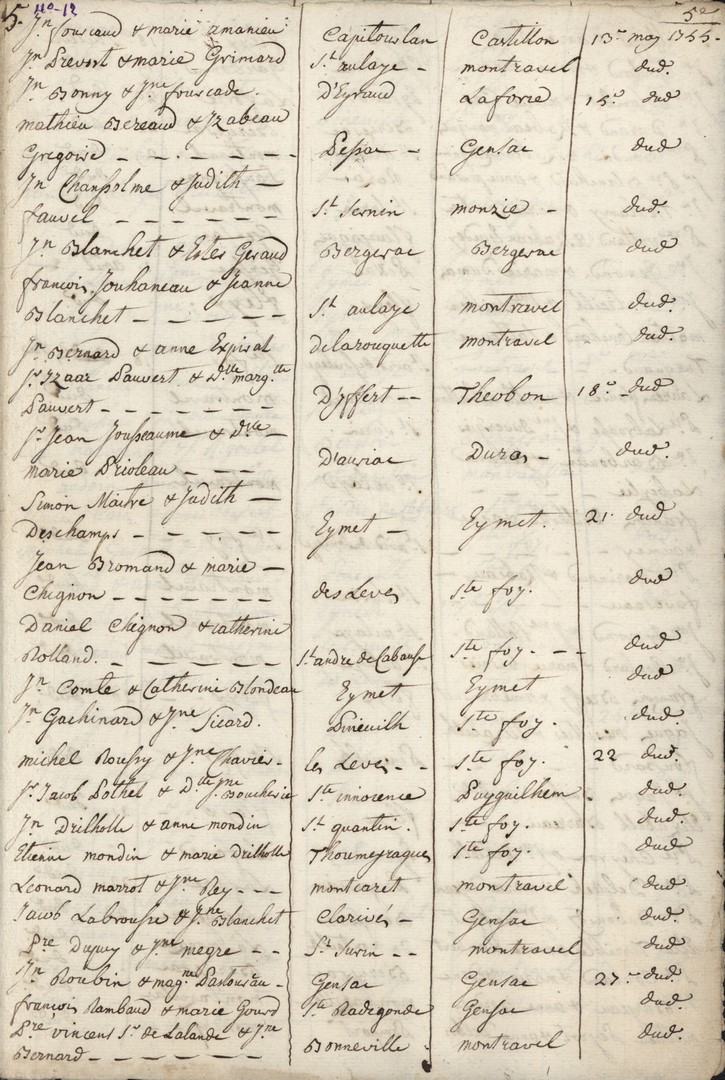 5. 110-12 5e
Jn fourcaud & marie amanieu Capitourlan Castillon 13e may 1755.
Jn Prevost & marie Grimard St aulaye - montravel dud.
Jn Bonny & Jne fourcade. D'Eyraud Laforce 15e dud
mathieu Bereaud & Izabeau
Gregoire - - - - - - Pessac - Gensac dud
Jn Chansolme & Judith -
fauvel - - - - - - St Sernin monzie - dud.
Jn Blanchet & Ester Geraud Bergerac Bergerac dud
françois Jouhaneau & Jeanne
Blanchet - - - - - St aulaye montravel dud.
Jn Bernard & anne Expirat delarouquette montravel dud.
Sr Izaac Pauvert & Dlle margtte
Pauvert - - - - - - - D'Yffert - - Theobon 18e - dud
Sr Jean Jousseaume & Dlle -
marie Prioleau - - - D'auriac Duras - dud.
Simon Maitre & Judith -
Deschamps - - - - - Eymet - Eymet. 21. dud
Jean Bromand & marie -
Chignon - - - - - - - des Leves Ste foy. dud
Daniel Chignon & catherine
Rolland. - - - - - - St andre de Cabause Ste foy. - - dud
Jn Comte & Catherine Blondeau Eymet Eymet dud
Jn Gachinard & Jne Sicard. Pineuilh Ste foy. dud.
michel Roussy & Jne Chavier - les Leves - - Ste foy. 22 dud.
Sr Jacob Pothet & Dlle Jne Boucherie Ste innocence Puyguilhem. dud.
Jn Drilholle & anne mondin St quantin. Ste foy. dud.
Etienne mondin & marie Drilholle Thoumeyragues Ste foy. dud
Leonard marrot & Jne Rey - - - montcaret montravel dud.
Jacob Labrousse & Jne Blanchet Clarivés - Gensac dud.
Pre Dupuy & Jne megre - - St Surin - - montravel dud.
Jn Roubin & magne Parlouseau - Gensac Gensac 27e dud.
françois Rambaud & marie Gourd Ste Radegonde Gensac dud.
Pre vincens Sr de Lalande & Jne
Bernard - - - - - - - Bonneville montravel dud.